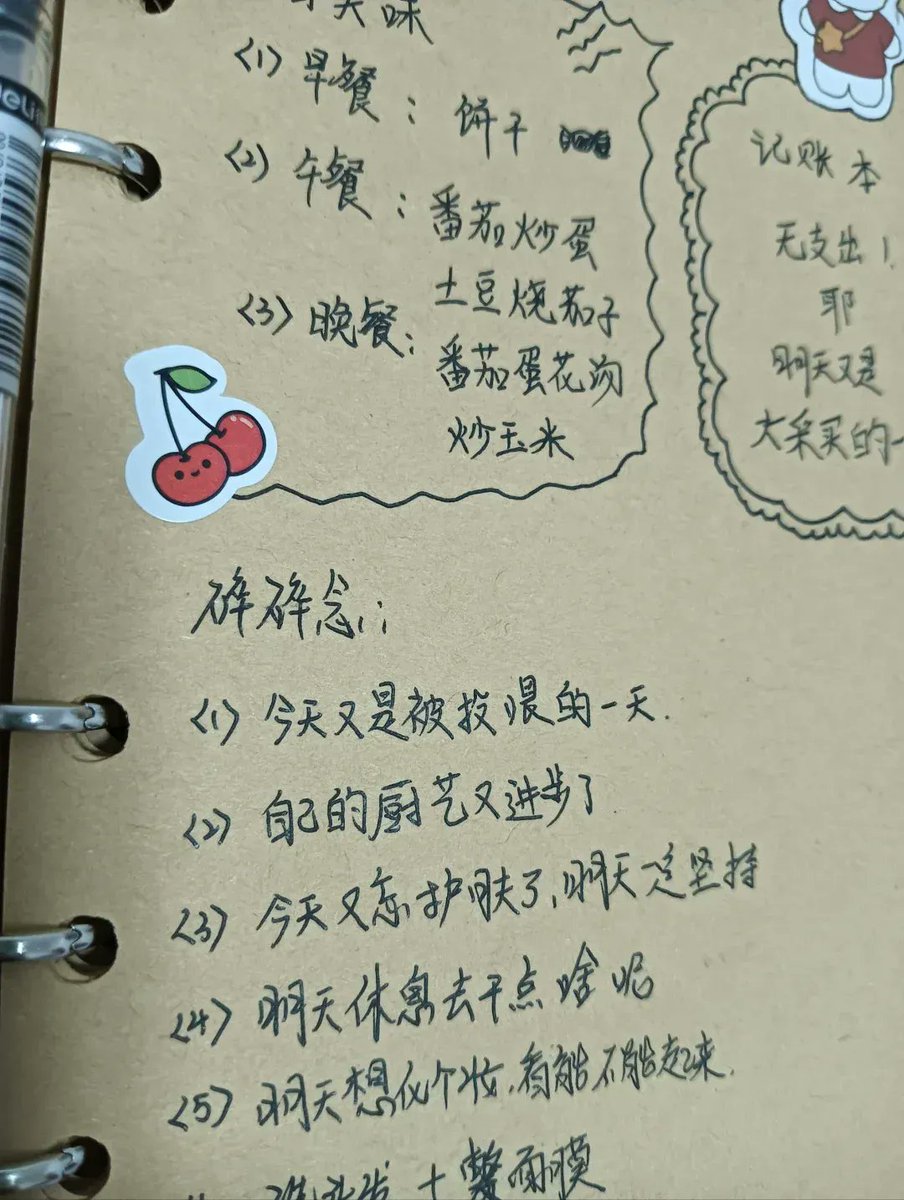 美味
(1) 早餐：饼干
(2) 午餐：番茄炒蛋
土豆烧茄子
(3) 晚餐：番茄蛋花汤
炒玉米
记账本
无支出！
耶
明天又是
大采买的一
碎碎念：
(1) 今天又是被投喂的一天.
(2) 自己的厨艺又进步了
(3) 今天又忘护肤了，明天一定坚持
(4) 明天休息去干点啥呢
(5) 明天想化个妆，看能不能起来.
洗头发 + 敷面膜
deli